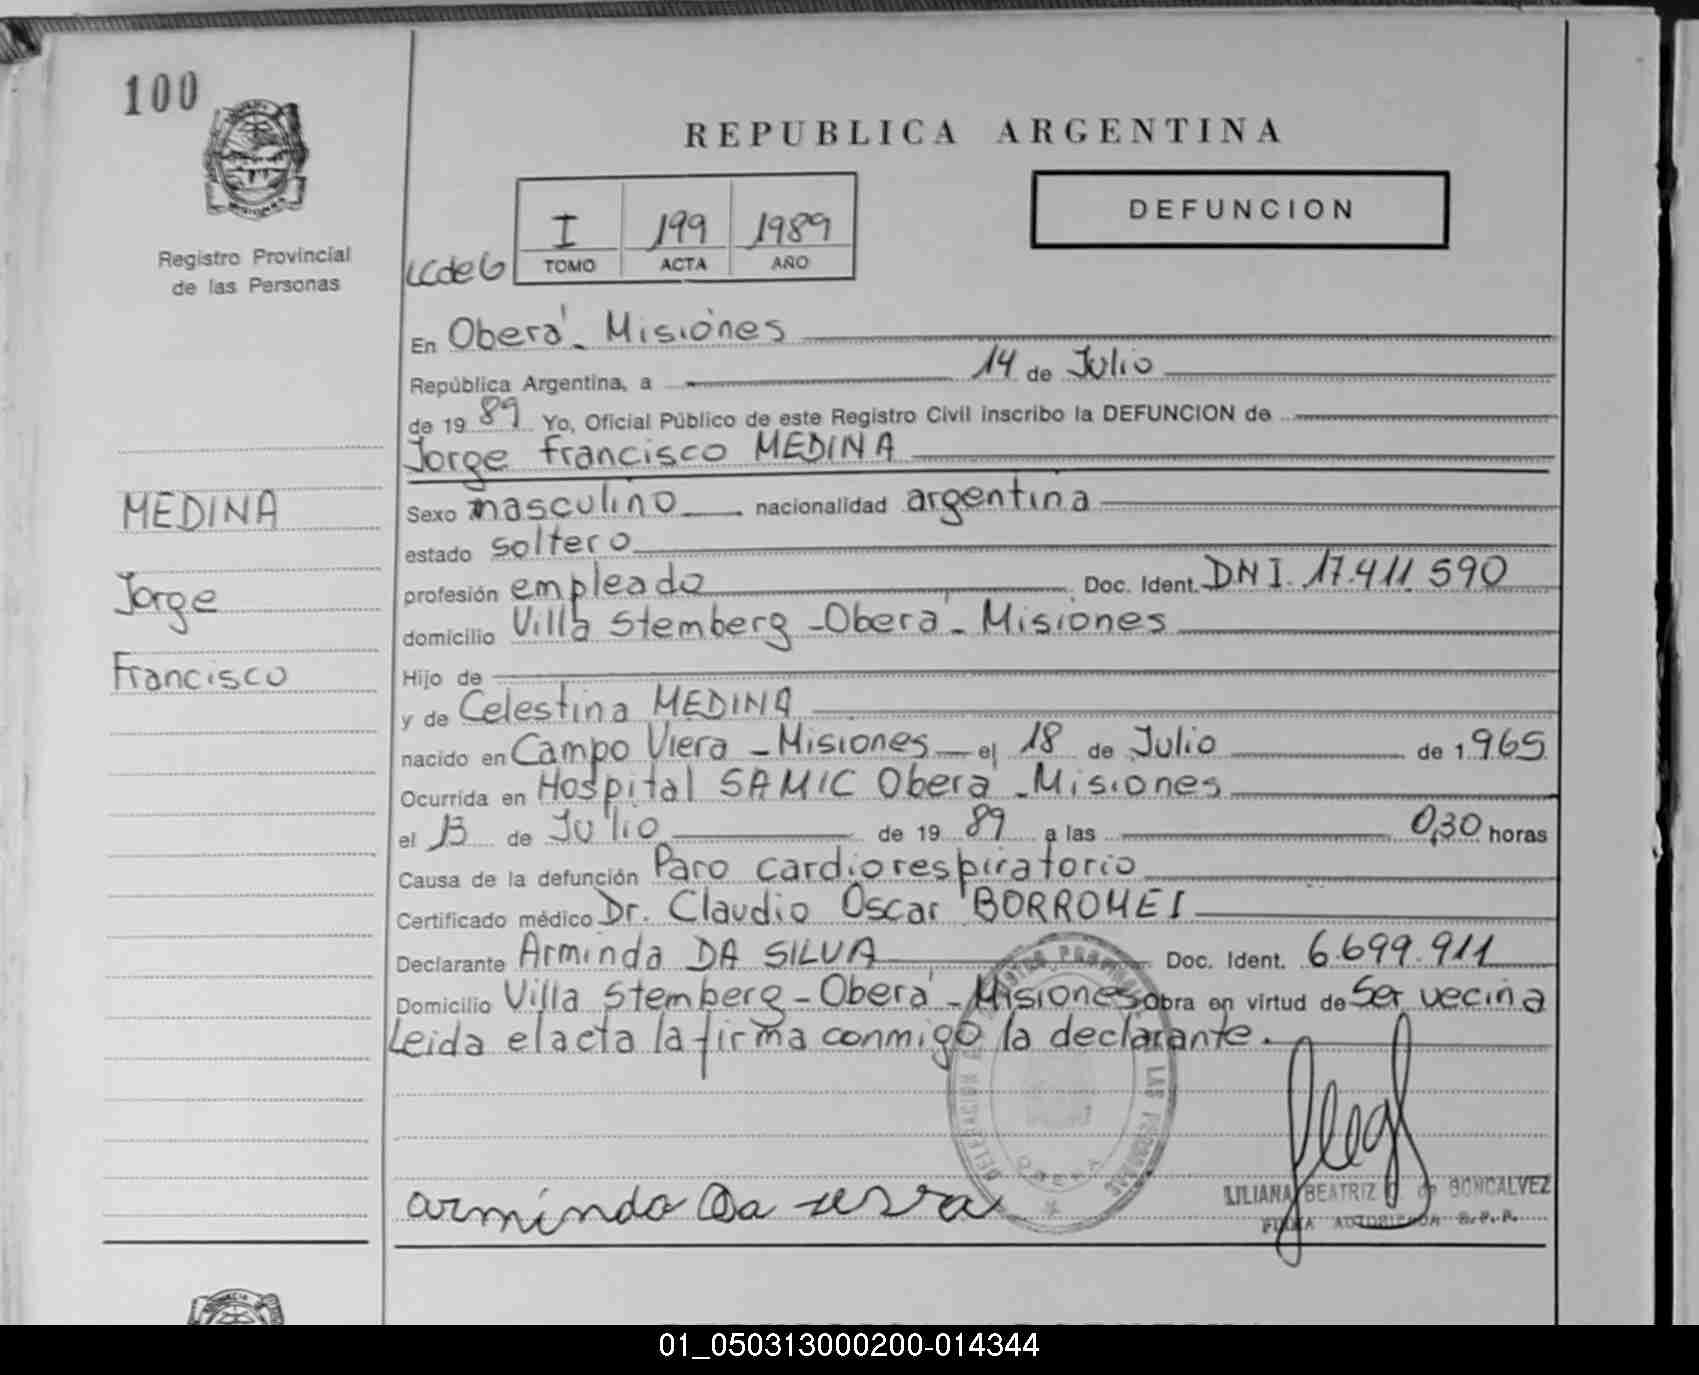 100
REPUBLICA ARGENTINA
DEFUNCION
I 199 1989
TOMO ACTA AÑO
Registro Provincial
de las Personas
En Oberá - Misiónes
República Argentina, a 14 de Julio
de 19 89 Yo, Oficial Público de este Registro Civil inscribo la DEFUNCION de
Jorge Francisco MEDINA
MEDINA
Jorge
Francisco
Sexo masculino nacionalidad argentina
estado soltero
profesión empleado Doc. Ident. DNI. 17.411.590
domicilio Villa Stemberg - Oberá - Misiones
Hijo de
y de Celestina MEDINA
nacido en Campo Viera - Misiones el 18 de Julio de 1.965
Ocurrida en Hospital SAMIC Oberá - Misiones
el 13 de Julio de 19 89 a las 0,30 horas
Causa de la defunción Paro cardiorespiratorio
Certificado médico Dr. Claudio Oscar BORROMEI
Declarante Arminda DA SILVA Doc. Ident. 6.699.911
Domicilio Villa Stemberg - Oberá - Misiones obra en virtud de Ser vecina
Leida el acta la firma conmigo la declarante.
OBERA
LILIANA BEATRIZ de GONCALVEZ
FIRMA AUTORIZADA R.P.P.
01_050313000200-014344